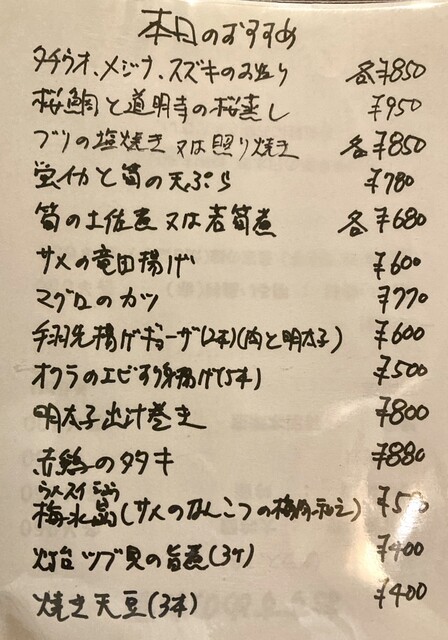 本日のおすすめ
タチウオ、メジナ、スズキのお造り 各¥850
桜鯛と道明寺の桜蒸し ¥950
ブリの塩焼き又は照り焼き 各¥850
蛍イカと筍の天ぷら ¥780
筍の土佐煮又は若筍煮 各¥680
サメの竜田揚げ ¥600
マグロのカツ ¥770
手羽先揚げギョーザ(2本)(肉と明太子) ¥600
オクラのエビすり身揚げ(5本) ¥500
明太子出汁巻き ¥800
赤鶏のタタキ ¥880
ウメスイショウ
梅水晶(サメのなんこつの梅肉和え) ¥550
灯台ツブ貝の旨煮(3ケ) ¥400
焼き天豆(3本) ¥400